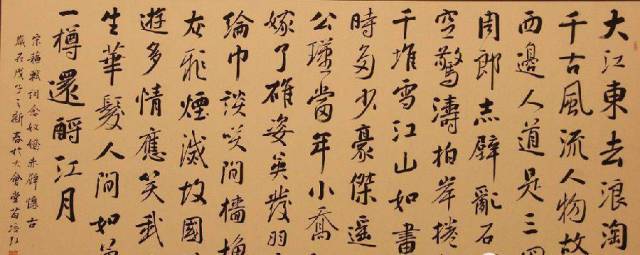 大江東去浪淘
千古風流人物故
西邊人道是三國
周郎赤壁亂石
空驚濤拍岸捲
千堆雪江山如畫
時多少豪傑遙
公瑾當年小喬
嫁了雄姿英發羽
綸巾談笑間檣
灰飛煙滅故國
遊多情應笑我
生華髮人間如
一樽還酹江月
宋蘇軾詞念奴嬌赤壁懷古
歲在戊子之新春於大會堂